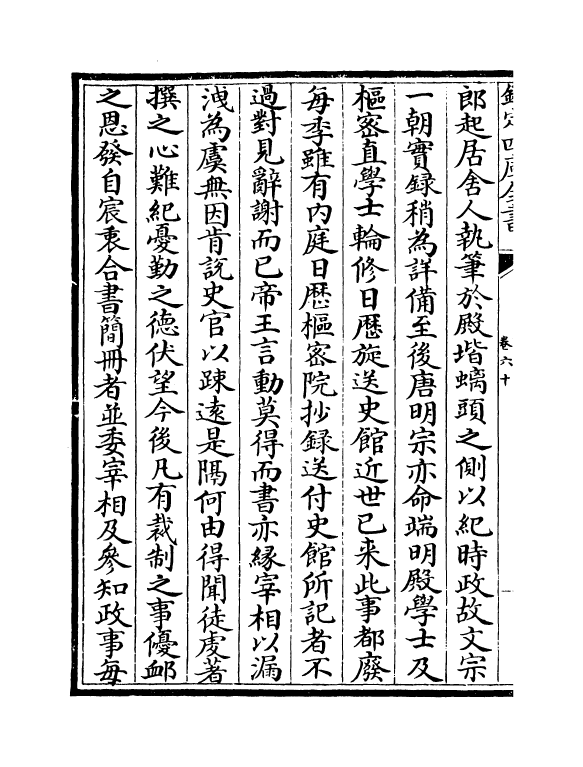 欽定四庫全書
卷六十
郎起居舍人執筆於殿堦螭頭之側以紀時政故文宗
一朝實録稍為詳備至後唐明宗亦命端明殿學士及
樞宻直學士輪修日厯旋送史館近世已来此事都廢
每季雖有内庭日厯樞宻院抄録送付史館所記者不
過對見辭謝而已帝王言動莫得而書亦緣宰相以漏
洩為虞無因肯説史官以疎遠是隔何由得聞徒䖍著
撰之心難紀憂勤之德伏望今後凡有裁制之事優䘏
之恩發自宸衷合書簡冊者並委宰相及參知政事每